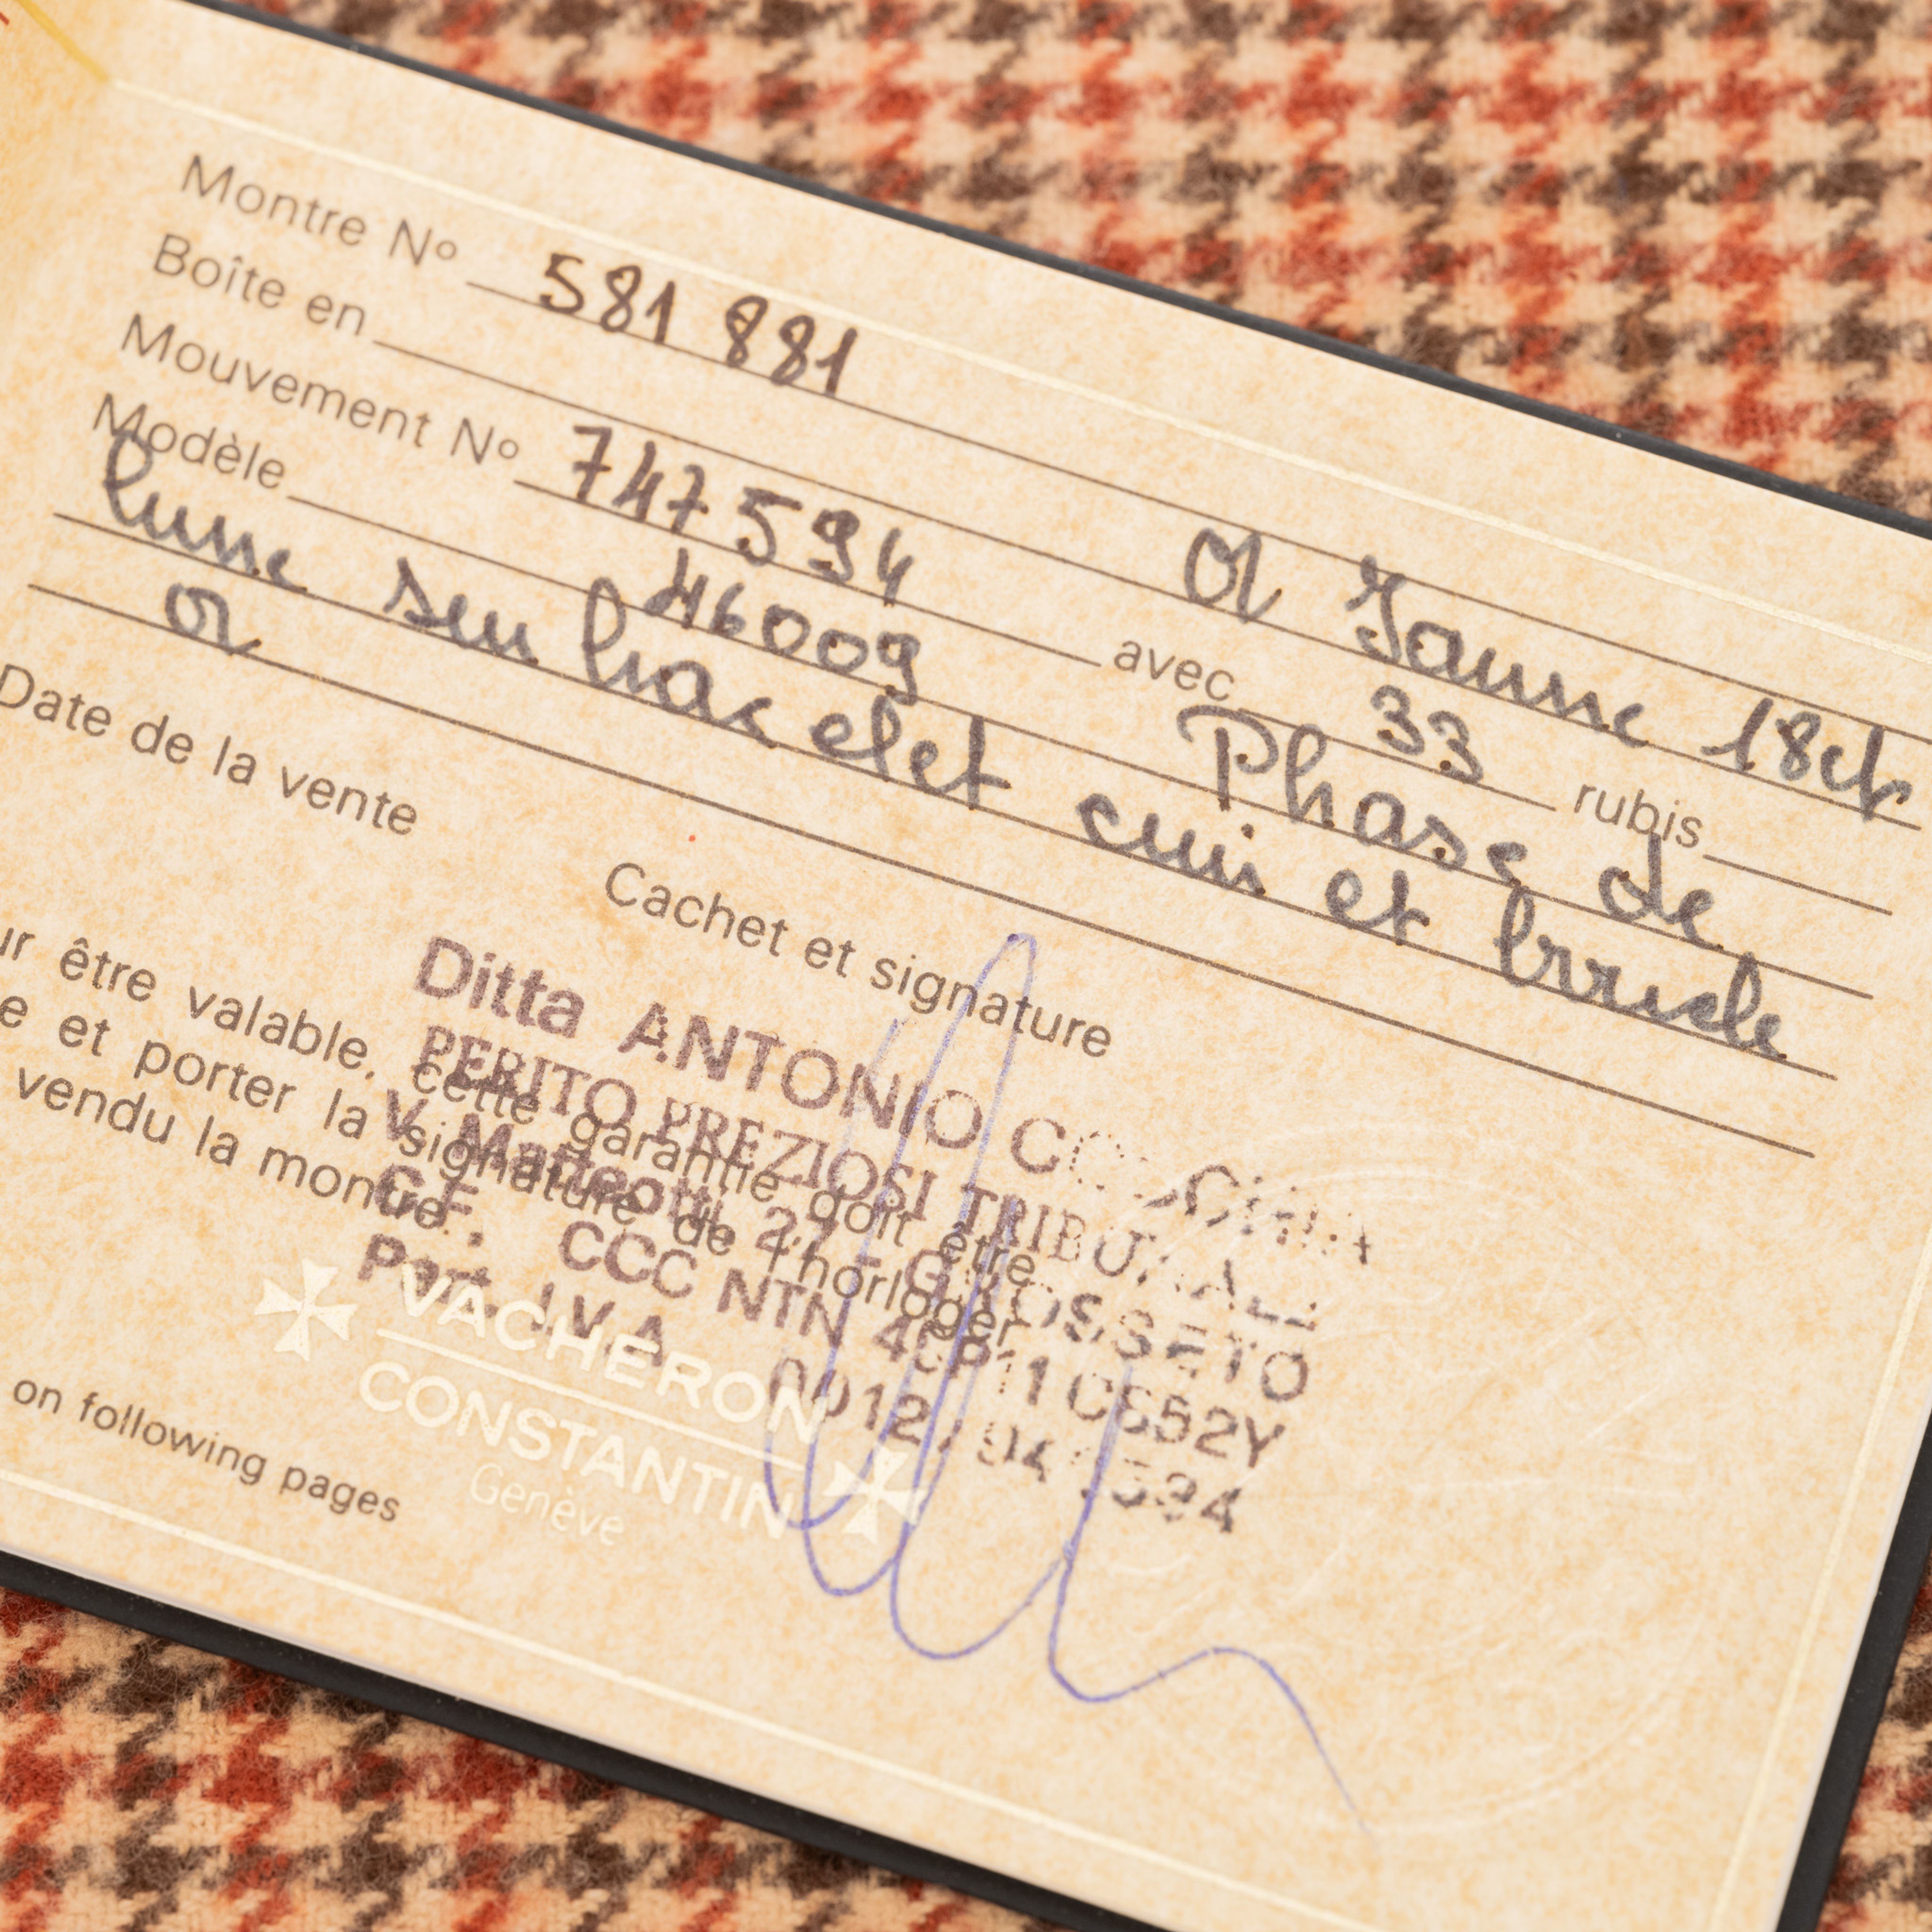 Montre Nº 581 881
Boîte en Or Jaune 18ct
Mouvement Nº 747 594 avec 33 rubis
Modèle 46009 Phase de
lune sur bracelet cuir et boucle
or
Date de la vente
Cachet et signature
Ditta ANTONIO
PERITO PREZIOSI TRIBUNALE
V. Matteotti, 27 - GROSSETO
C.F. CCC NTN
Part. I.V.A.
ur être valable, cette garantie doit être
e et porter la signature de l'horloger
vendu la montre.
VACHERON
CONSTANTIN
Genève
on following pages